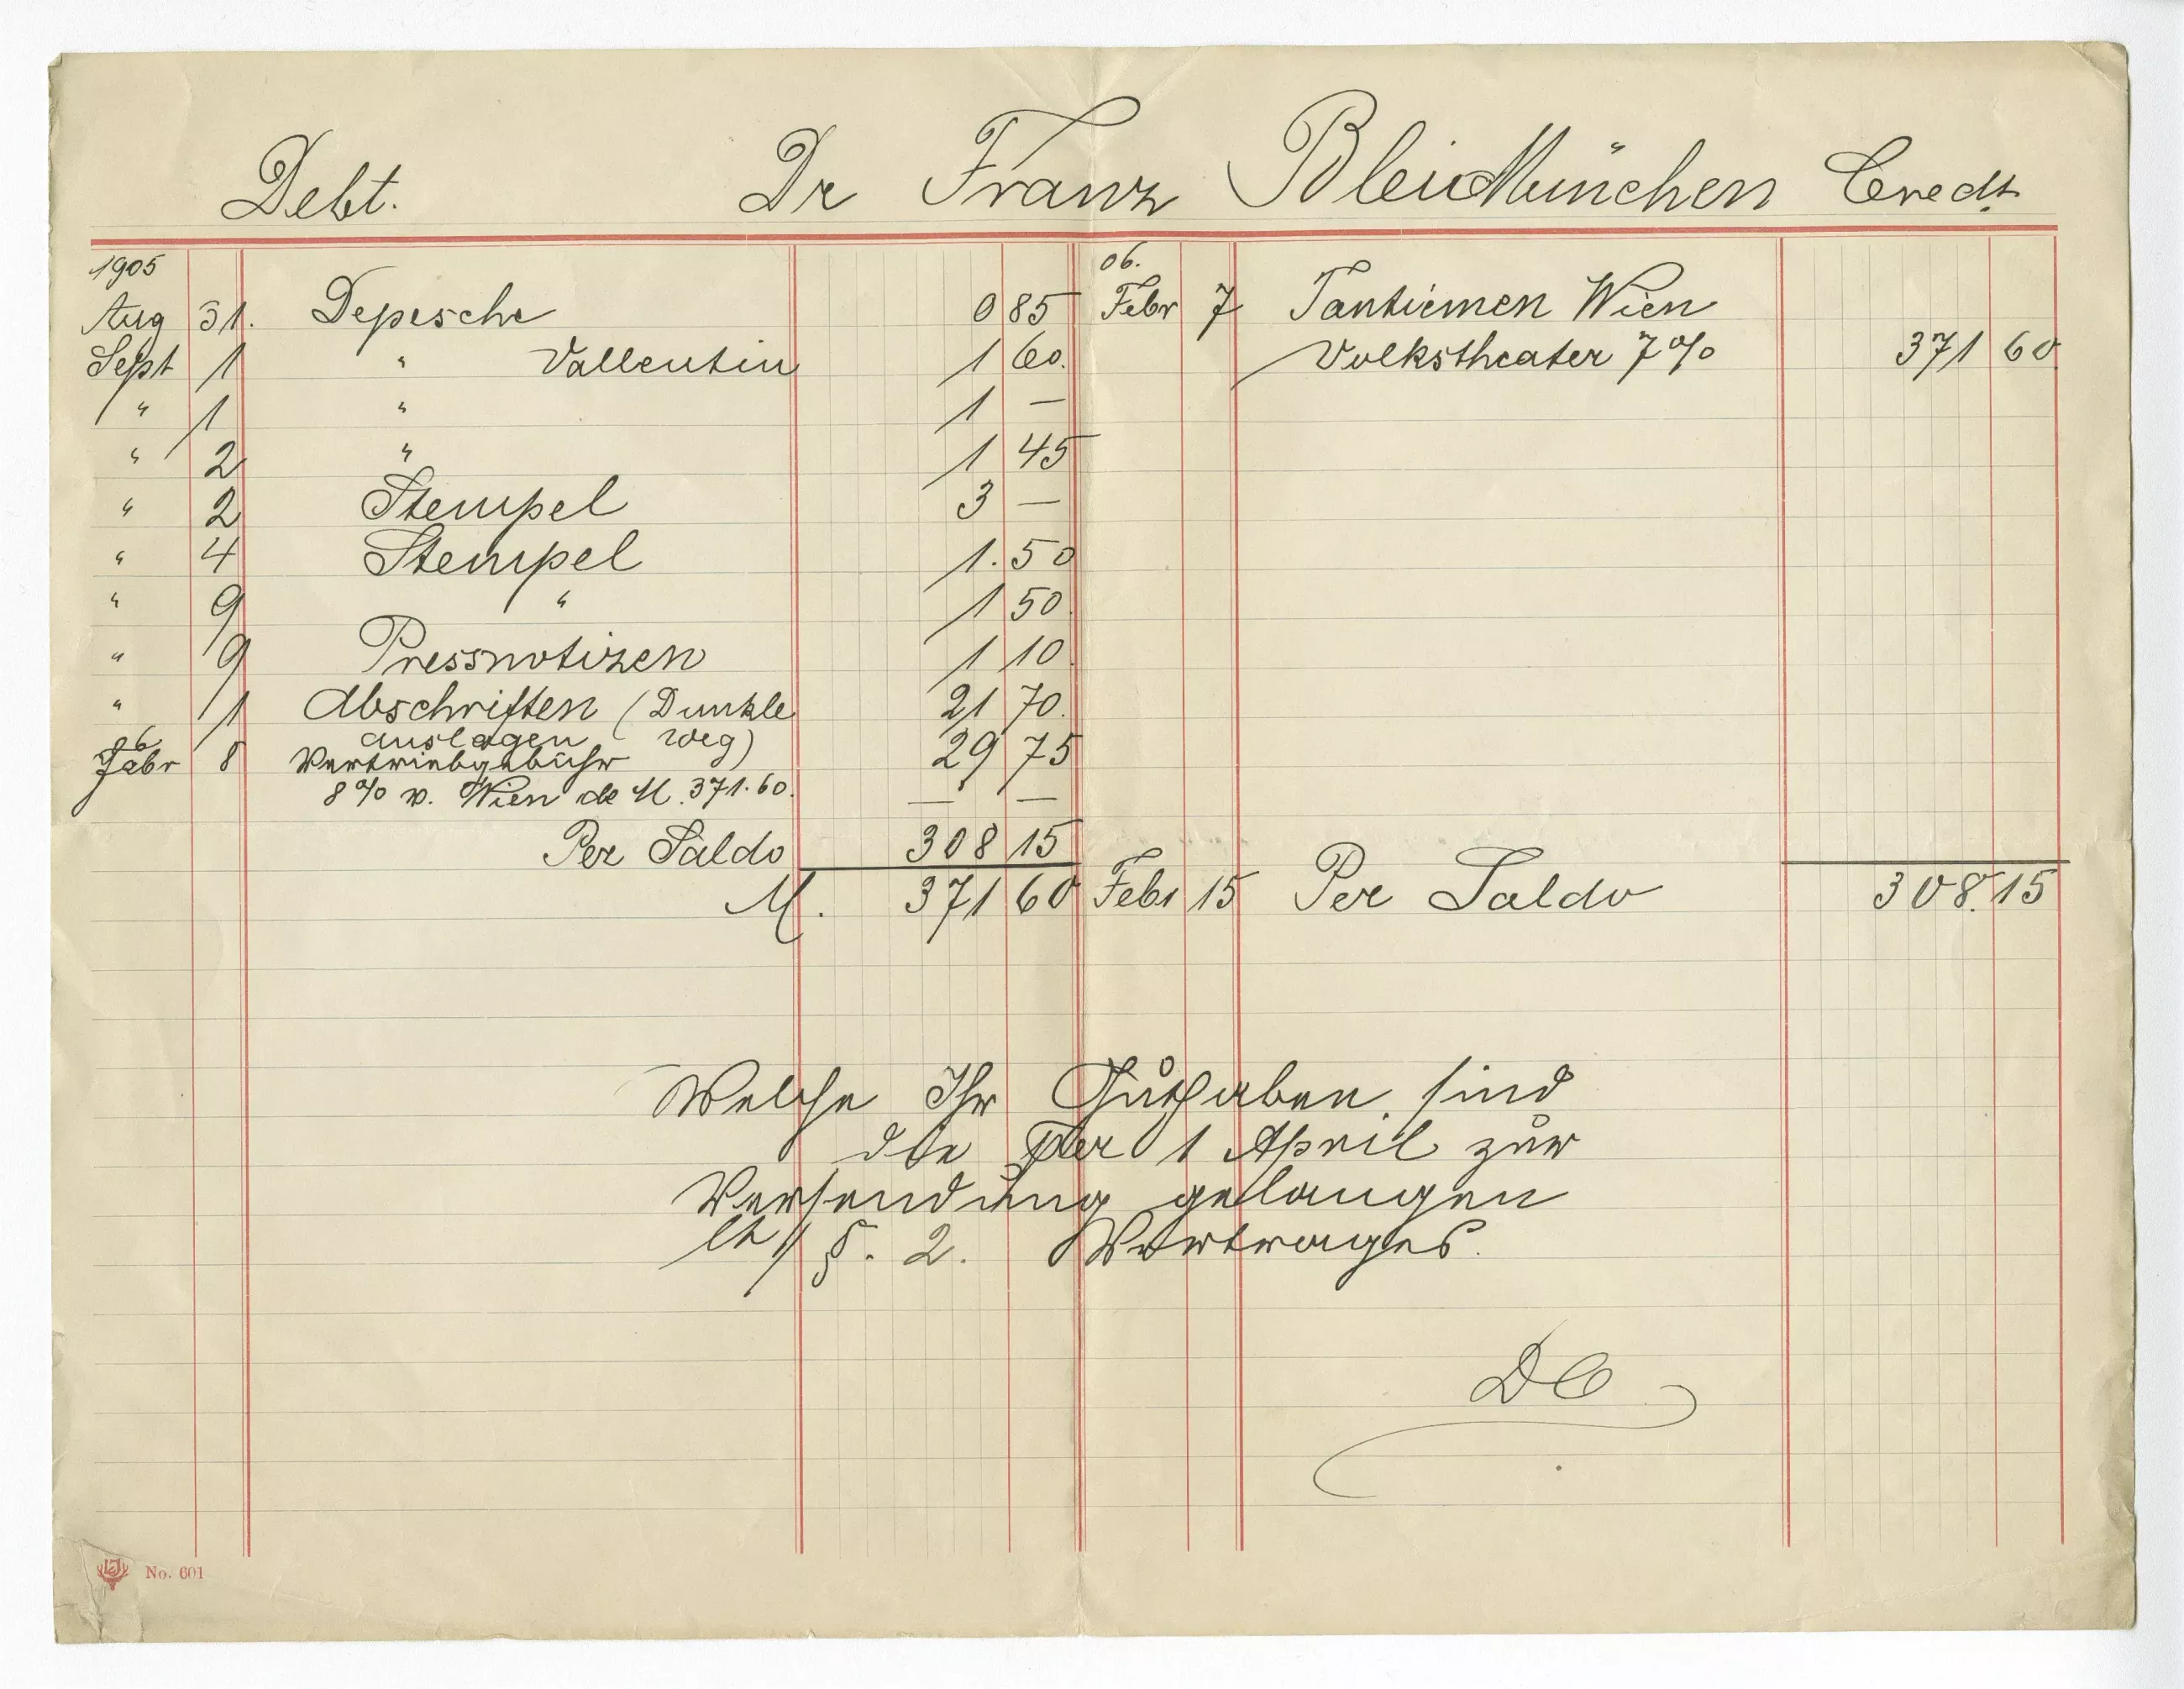 Debt. Dr Franz Blei München Credt.
1905
Aug 31. Depesche 0 85
Sept 1 " Vallentin 1 60.
" 1 " 1 —
" 2 " 1 45
" 2 Stempel 3 —
" 4 Stempel 1.50
" 9 " 1 50
" 9 Pressnotizen 1 10
" 1 Abschriften (Dunkle 21 70.
auslagen Weg)
06
Febr 8 Vertriebgebühr 29 75
8% v. Wien de M. 371.60. — —
Per Saldo 308 15
M. 371 60
06.
Febr 7 Tantiemen Wien
Volkstheater 7% 371 60
Febr 15 Per Saldo 308.15
Welche Ihr Guthaben sind
die per 1 April zur
Versendung gelangen
lt § 2. Vertrages.
No. 601